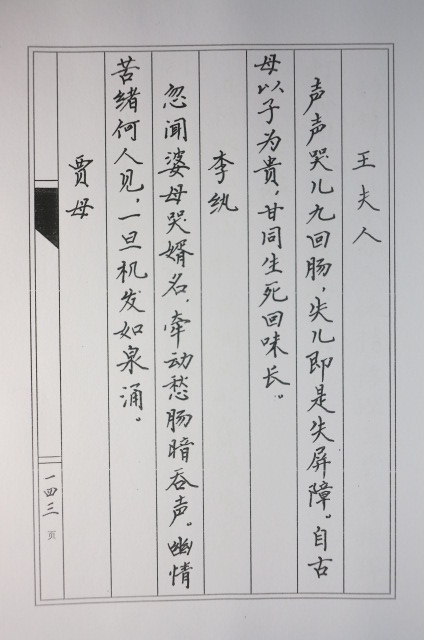 王夫人
声声哭儿九回肠，失儿即是失屏障。自古
母以子为贵，甘同生死回味长。
李纨
忽闻婆母哭婿名，牵动愁肠暗吞声。幽情
苦绪何人见，一旦机发如泉涌。
贾母
一四三页